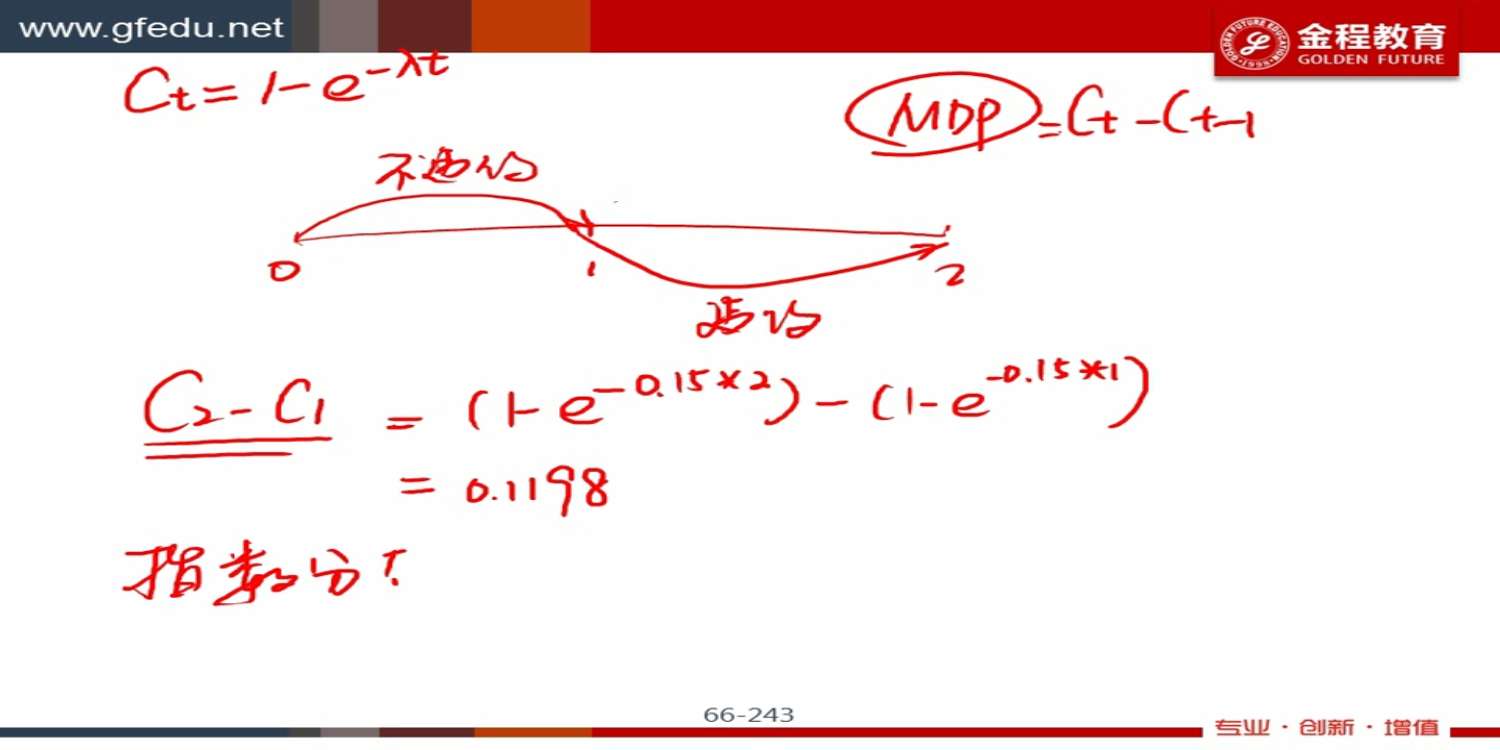 www.gfedu.net
金程教育
GOLDEN FUTURE
Ct = 1-e^-λt
MDP = Ct - Ct-1
不违约
0 1 2
违约
C2 - C1 = (1-e^-0.15*2) - (1-e^-0.15*1)
= 0.1198
指数分
66-243
专业·创新·增值